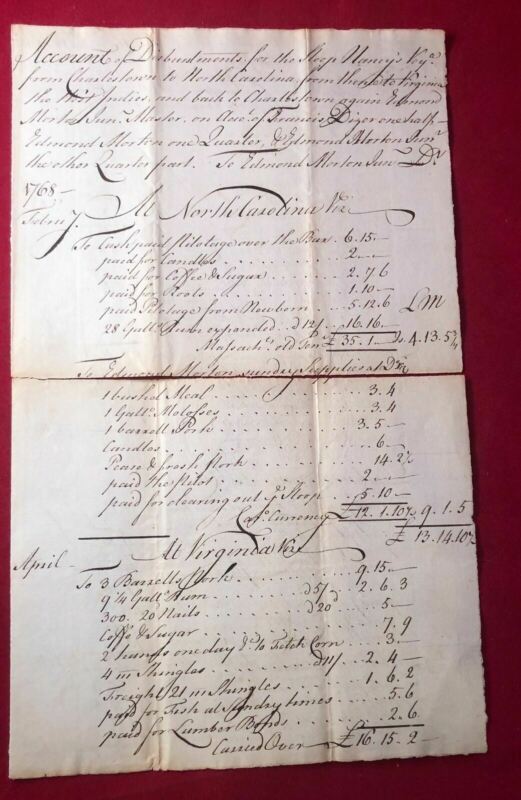 Account of Disbustments for the Sloop Nancy's Voyᵃ
from Charlestown to North Carolina, from thence to Virginia
the West Indies, and back to Charlestown again Edmond
Morton Junʳ. Master, on Accoᵗ. of Francis Dizer one half
Edmond Morton one Quarter, & Edmond Morton Junʳ
the other Quarter part. To Edmond Morton Junʳ Dʳ
1768 —
Febru 7. At North Carolina Vizᵗ
To Cash paid Pilotage over the Bar 6.15 —
paid for Candles 2 —
paid for Coffee & Sugar 2.7.6
paid for Roots 1.10 —
paid Pilotage from Newborn 5.12.6 LM
28 Gallˢ. Rum expended @ 12/ 16.16.
Massachˢ. old Tenʳ £ 35.1 — Is 4.13.5¾
To Edmond Morton sundry Supplies at Dº Vizᵗ
1 bushel Meal 3.4
1 Gallⁿ. Molosses 3.4
1 barrell Pork 3.5 —
Candles 6 —
Pease & fresh Pork 14.2½
paid the Pilot 2 —
paid for clearing out yᵉ Sloop 5.10 —
Caʳ. Currency £ 12.1.10½ 9.1.5
£ 13.14.10¾
April — At Virginia Vizᵗ
To 3 Barrells Pork 9.15 —
9¼ Gallˢ Rum @ 5/ 2.6.3
300. 20 Nails @ 20ᵈ 5 —
Coffe & Sugar 7.9
2 hands one day &ᶜ to Fetch Corn 3 —
4 m Shingles @ 11/ 2.4 —
Freight 21 m Shingles 1.6.2
paid for Fish at Sundry times 5.6
paid for Lumber Bonds 2.6
Carried Over £ 16.15.2